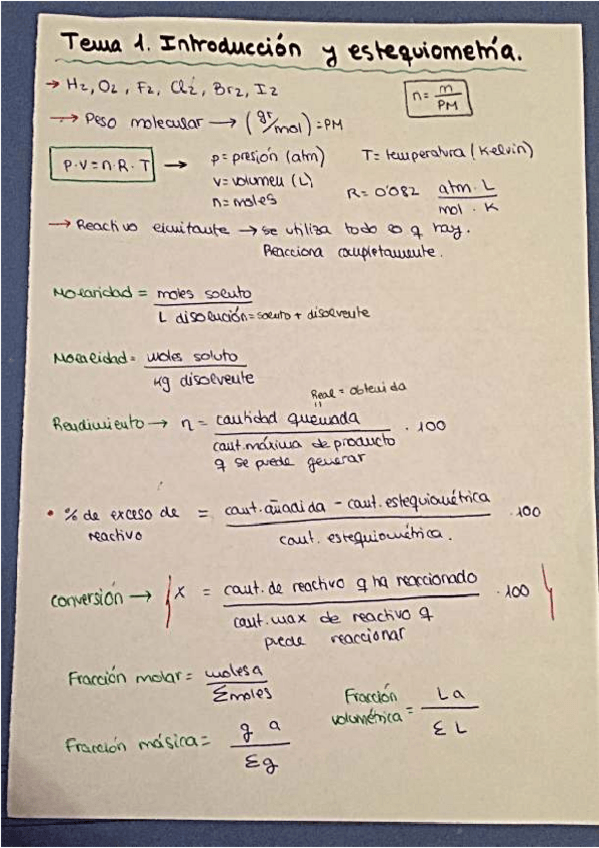 Tema 1. Introducción y estequiometría.
→ H2, O2, F2, Cl2, Br2, I2
n = m / PM
→ Peso molecular → (gr/mol) = PM
P·V = n·R·T → P = presión (atm) T = temperatura (Kelvin)
V = volumen (L)
n = moles R = 0'082 atm·L / mol·K
→ Reactivo limitante → se utiliza todo lo q hay.
Reacciona completamente.
Molaridad = moles soluto / L disolución = soluto + disolvente
Molalidad = moles soluto / kg disolvente
Real = obtenida
"
Rendimiento → η = cantidad quemada / cant. máxima de producto q se puede generar · 100
• % de exceso de reactivo = cant. añadida - cant. estequiométrica / cant. estequiométrica. · 100
conversión → { x = cant. de reactivo q ha reaccionado / cant. max de reactivo q puede reaccionar · 100 }
Fracción molar = moles a / Σ moles
Fracción volumétrica = L a / Σ L
Fracción másica = g a / Σ g